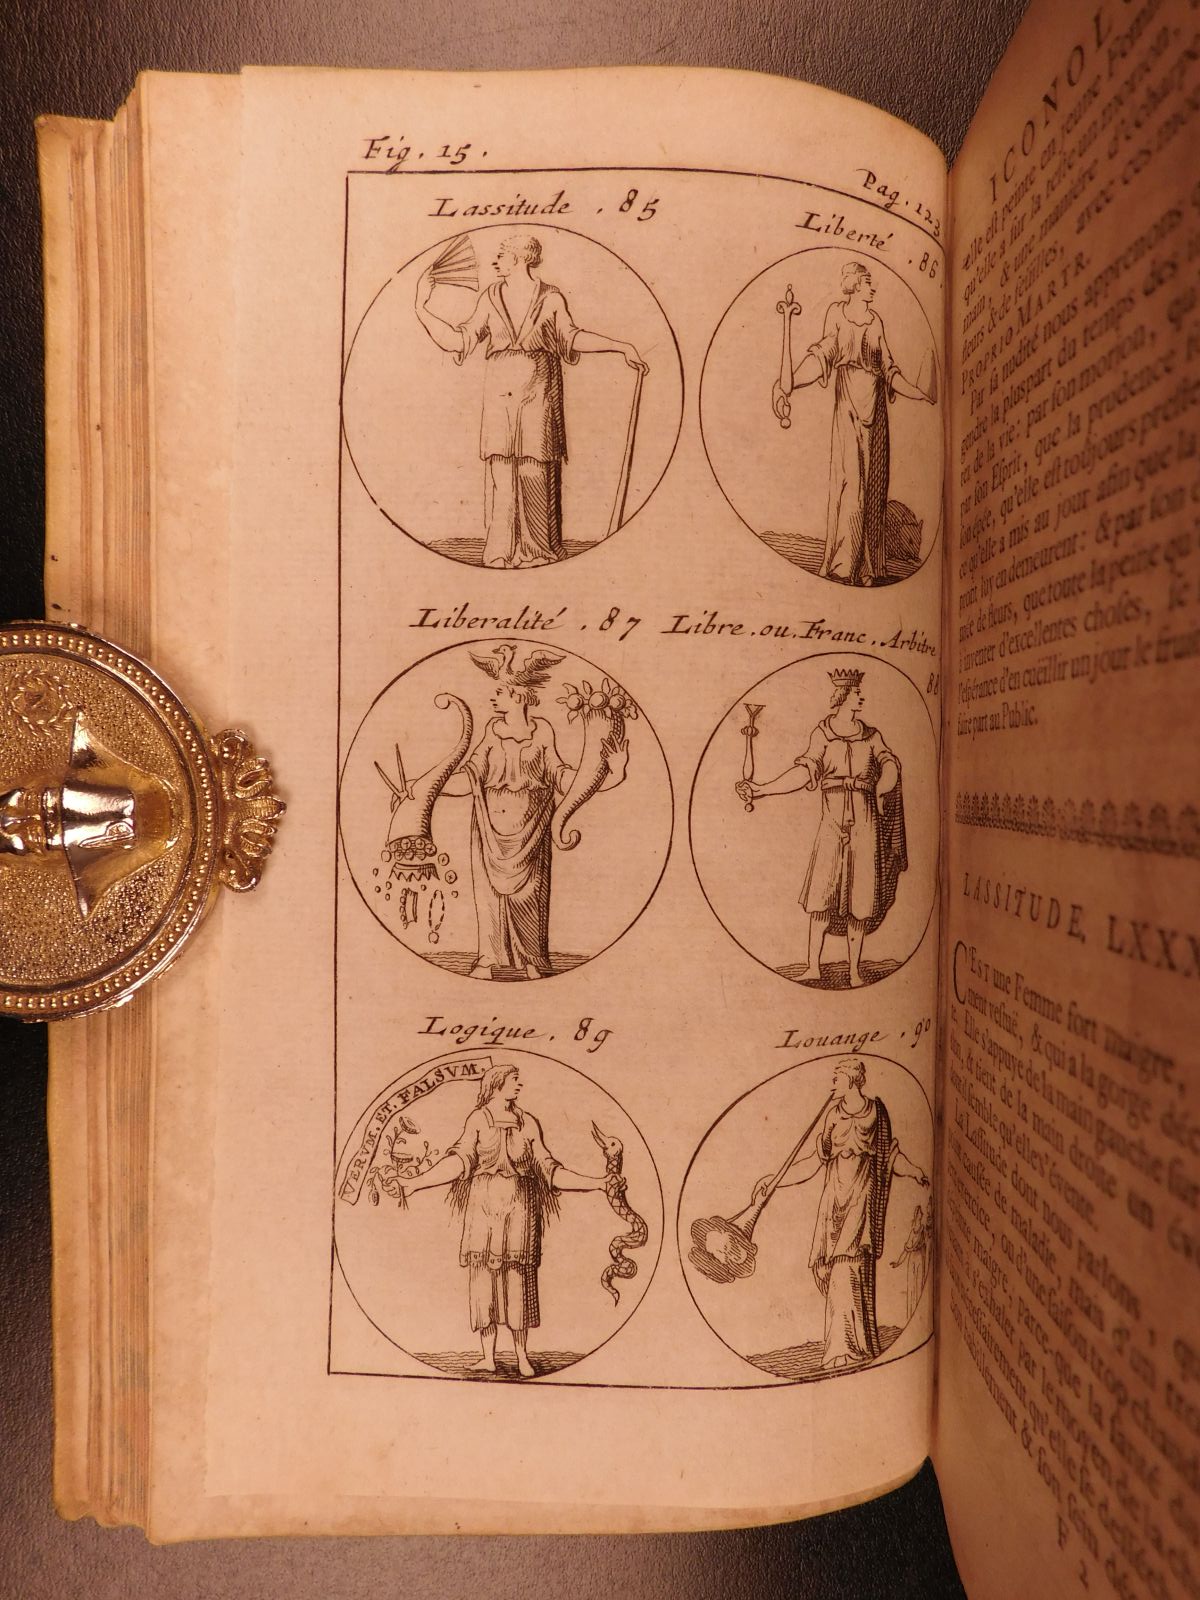 Fig. 15.
Pag. 123
Lassitude . 85
Liberté . 86.
Liberalité . 87
Libre . ou . Franc . Arbitre
88
Logique . 89
VERVM . ET . FALSVM .
Louange . 90
ICONOL
elle est peinte en jeune Femme
qu'elle a sur la teste un morion,
main, & une maniere d'écharpe
fleurs & de feüilles, avec ces mots
PROPRIO MARTE.
Par sa nudité nous apprenons
gendre la pluspart du temps des
rez de la vie: par son morion, que
par son Esprit, que la prudence
son épée, qu'elle est toûjours preste
ce qu'elle a mis au jour afin que la
luy en demeurent: & par son
de fleurs, que toute la peine qu'
inventer d'excellentes choses, le
l'esperance d'en cueillir un jour le fruit
faire part au Public.
LASSITUDE, LXXX
C'Est une Femme fort maigre,
ment vestuë, & qui a la gorge dé
Elle s'appuye de la main gauche sur
& tient de la main droite un év
semble qu'elle s'évente.
La Lassitude dont nous parlons,
causée de maladie, mais d'un
exercice, ou d'une saison trop chau
maigre, parce-que la santé
à s'exhaler par le moyen de la
necessairement qu'elle se
habillement & son sein dé
F 2